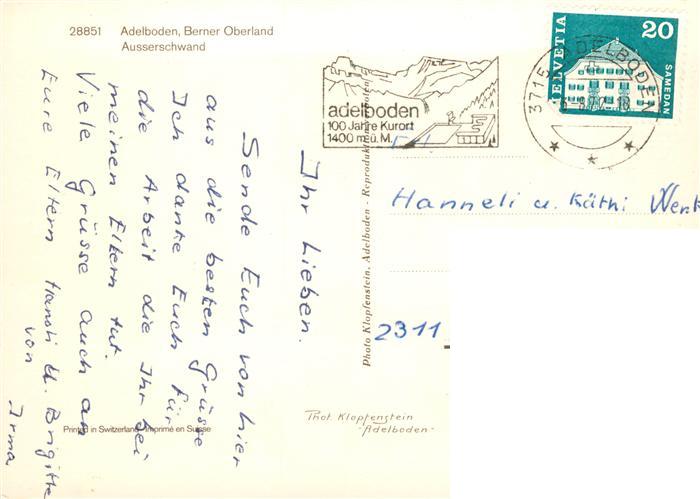 28851 Adelboden, Berner Oberland
Ausserschwand
HELVETIA
20
SAMEDAN
3715 ADELBODEN
adelboden
100 Jahre Kurort
1400 m ü. M.
Ihr Lieben.
Sende Euch von hier
aus die besten Grüsse
Ich danke Euch für
die Arbeit die Ihr bei
meinen Eltern tut.
Viele Grüsse auch an
Eure Eltern Hansli u. Brigitte
von
Irma
Hanneli u. Käthi
2311
Photo Klopfenstein, Adelboden - Reproduktion verboten
Phot. Klopfenstein
- Adelboden -
Printed in Switzerland - Imprimé en Suisse